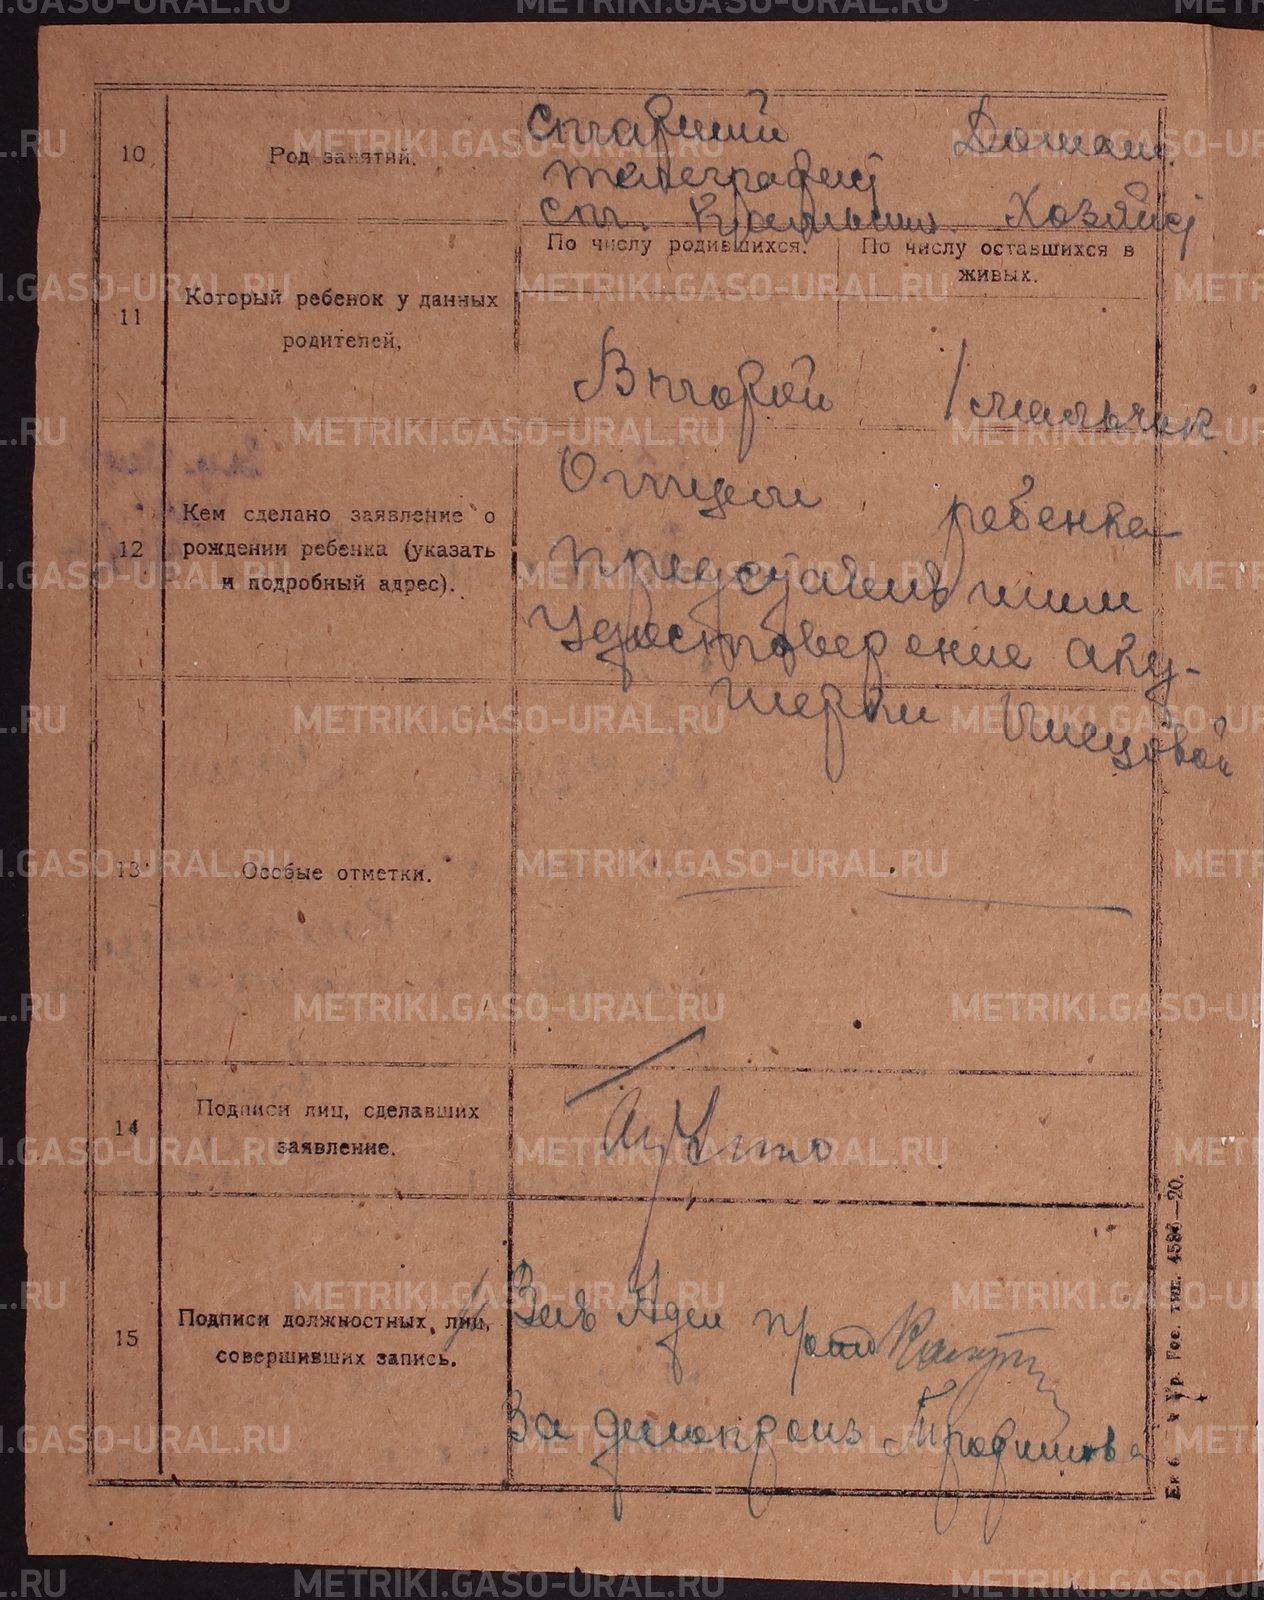 10 Род занятий.
Старший Домаш.
телеграфист
ст. Хозяйст
По числу родившихся. По числу оставшихся в
живых.
11 Который ребенок у данных
родителей,
Второй 1 мальчик
12 Кем сделано заявление о
рождении ребенка (указать
и подробный адрес).
Отцем ребенка
представившим
Удостоверение аку-
шерки
13 Особые отметки.
14 Подписи лиц, сделавших
заявление.
15 Подписи должностных лиц,
совершивших запись.
Зав
За делопроиз Трофимова
Гос. тип. 20.
METRIKI.GASO-URAL.RU